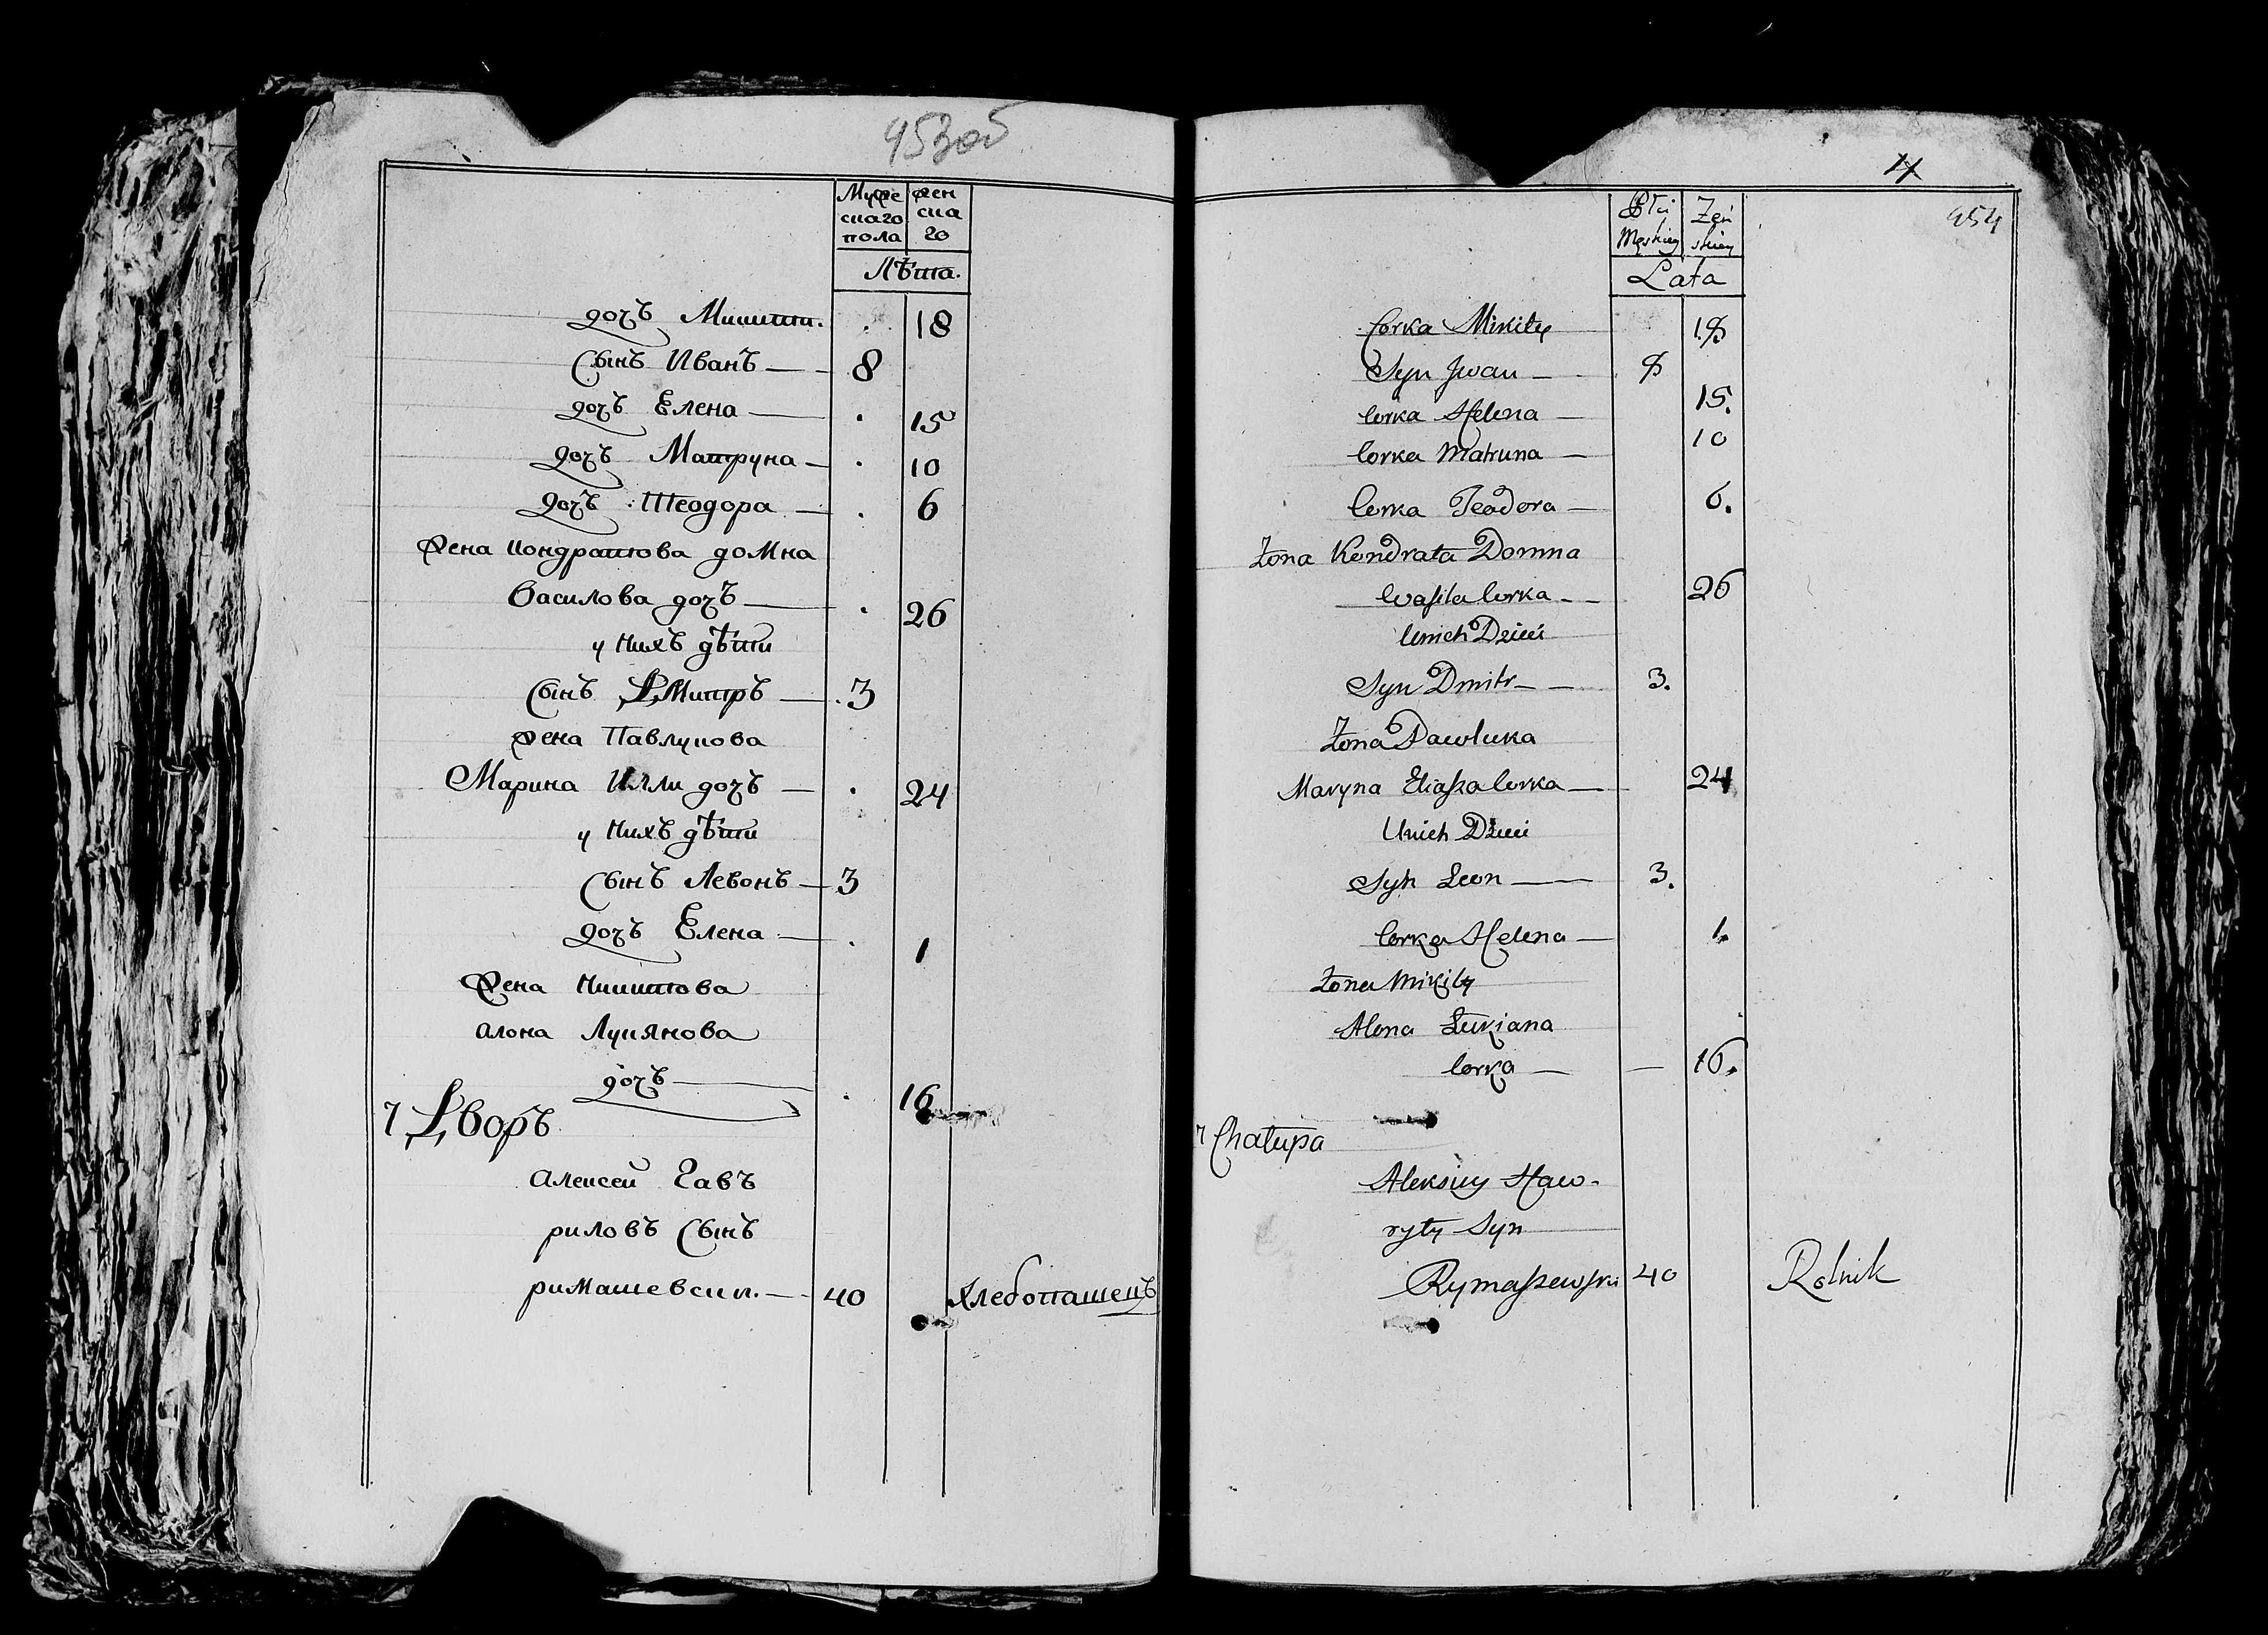 453об
Муже
скаго
пола
жен
ска
го
Лѣта.
дочь Микити. 18
Сынъ Иванъ — 8
дочь Елена — 15
дочь Матруна — 10
дочь Теодора — 6
жена кондратова домна
василова дочь — 26
у нихъ дѣти
Сынъ Дмитръ — 3
жена Павлукова
Марина Илли дочь — 24
у нихъ дѣти
Сынъ Левонъ — 3
дочь Елена — 1
жена Микитова
алона Лукянова
дочь — 16
7 Дворъ
алексей Гав
риловъ Сынъ
римашевски. — 40 хлебопашецъ
4
454
Płci
Męskiey
Żeń
skiey
Lata
Corka Mikity 18
Syn Jwan — 8
Corka Helena — 15.
Corka Matruna — 10
Corka Teodora — 6.
Żona Kondrata Domna
Wasila Corka — 26
Unich Dzieci
Syn Dmitr — 3.
Żona Pawluka
Maryna Eliasza Corka — 24
Unich Dzieci
Syn Leon — 3.
Corka Helena — 1.
Żona Mikity
Alona Łukiana
Corka — 16.
7 Chałupa
Aleksiey Haw-
ryły Syn
Rymaszewski 40 Rolnik